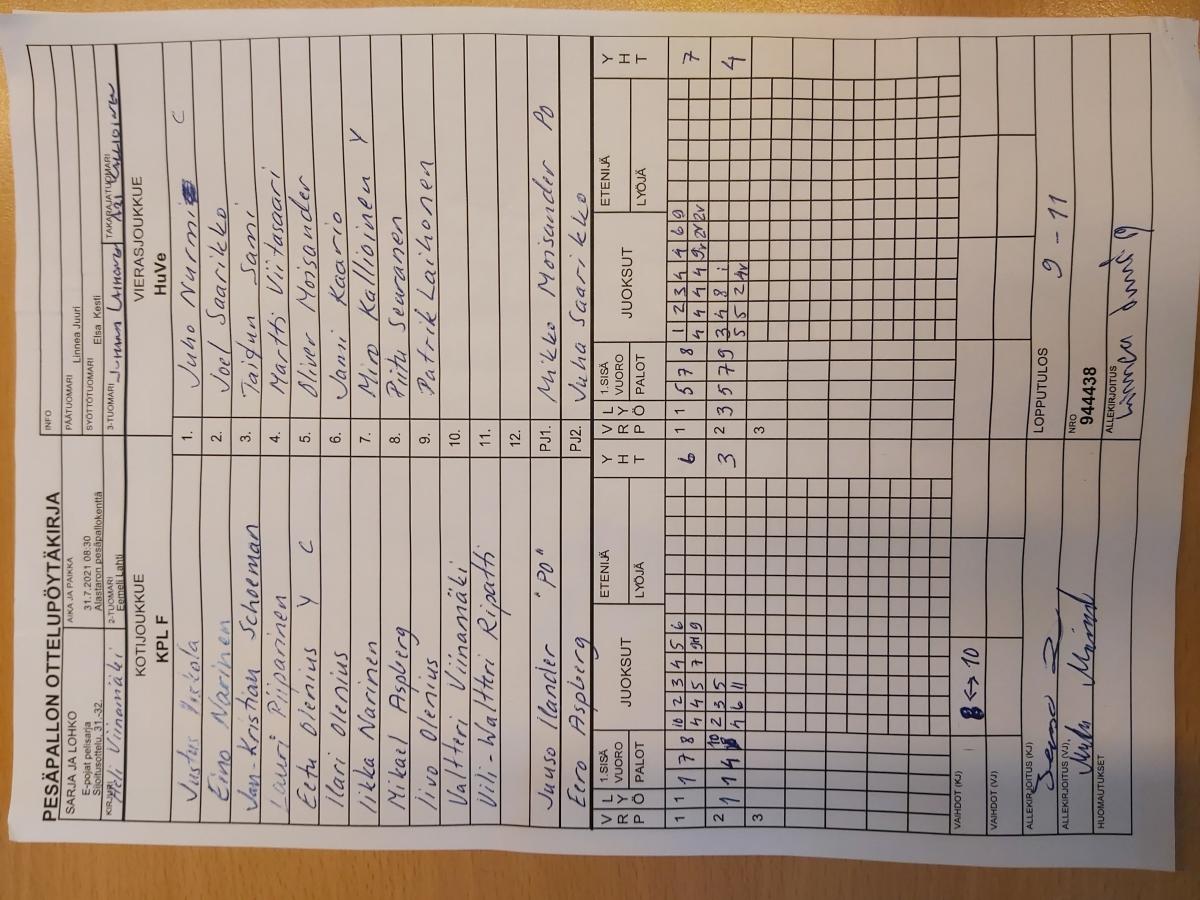 PESÄPALLON OTTELUPÖYTÄKIRJA
SARJA JA LOHKO
E-pojat pelisarja
Sijoitusottelu, 31.-32.
AIKA JA PAIKKA
31.7.2021 08:30
Alastaron pesäpallokenttä
INFO
PÄÄTUOMARI Linnea Juuri
SYÖTTÖTUOMARI Elsa Kesti
KIRJURI Heli Viinamäki
2-TUOMARI Eemeli Lahti
3-TUOMARI
TAKARAJATUOMARI
KOTIJOUKKUE
KPL F
VIERASJOUKKUE
HuVe
Justus Yrkola 1. Juho Nurmi C
Eino Narinen 2. Joel Saarikko
Jan-Kristian Schoeman 3. Taigun Sami
Lauri Piiparinen 4. Martti Viitasaari
Eetu Olenius Y C 5. Oliver Moisander
Ilari Olenius 6. Janni Kaario
Iikka Narinen 7. Miro Kallioinen Y
Mikael Aspberg 8. Piitu Seuranen
Iivo Olenius 9. Patrik Laihonen
Valtteri Viinamäki 10.
Vili-Waltteri Ripatti 11.
12.
Juuso Ilander "PO" PJ1. Mikko Moisander PO
Eero Aspberg PJ2. Juha Saarikko
VRP LYÖ 1.SISÄ VUORO PALOT JUOKSUT ETENIJÄ LYÖJÄ YHT VRP LYÖ 1.SISÄ VUORO PALOT JUOKSUT ETENIJÄ LYÖJÄ YHT
1 1 1 7 8 10 2 3 4 5 6 6 1 1 5 7 8 1 2 3 4 4 6 9 7
4 4 5 7 9 4 4 4 4 2v 2v
2 1 1 4 2 3 5 3 2 3 5 7 9 3 4 8 i 4
4 6 11 5 5 2 4v
3 3
VAIHDOT (KJ) 8 <-> 10
VAIHDOT (VJ)
ALLEKIRJOITUS (KJ)
LOPPUTULOS 9 - 11
ALLEKIRJOITUS (VJ)
NRO
944438
HUOMAUTUKSET
ALLEKIRJOITUS
Linnea Juuri